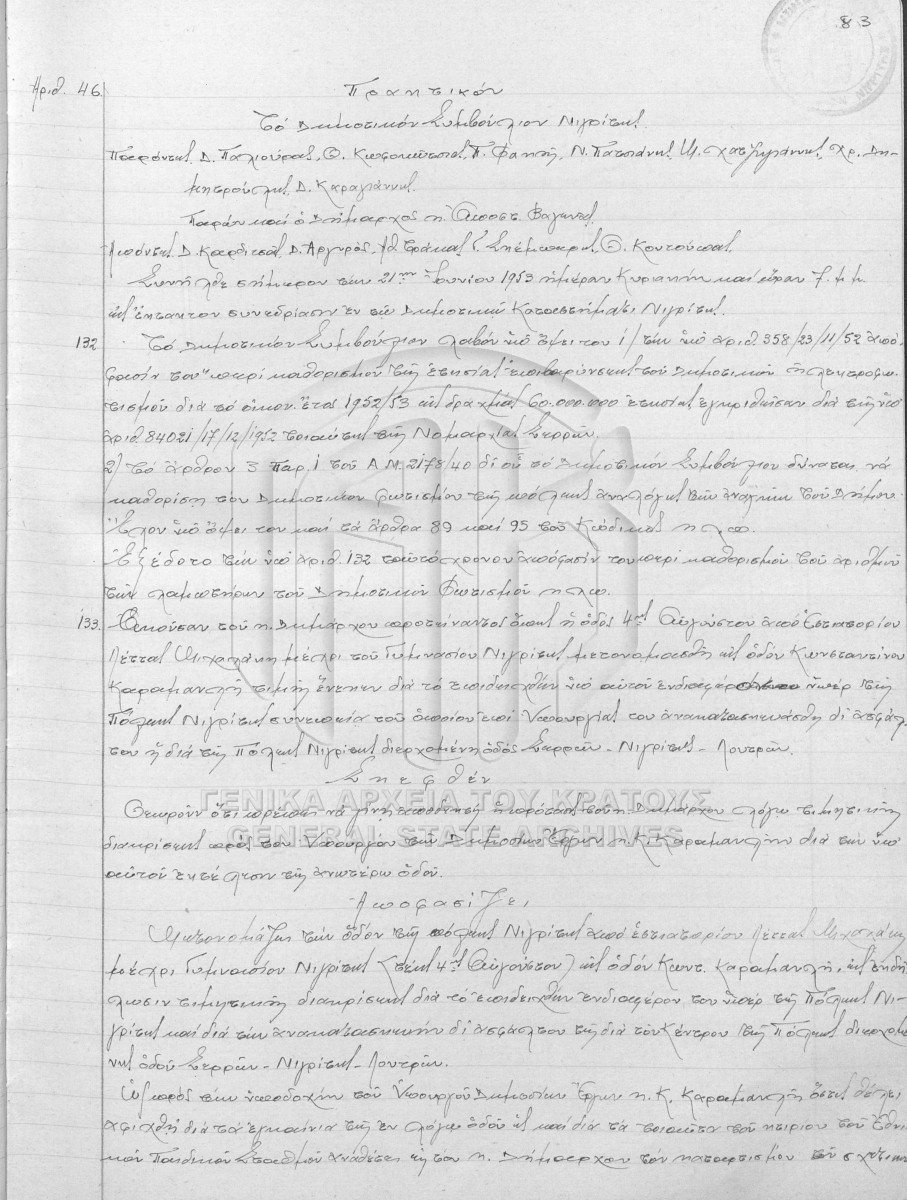 83
Αριθ. 46.
Πρακτικόν
Τό Δημοτικόν Συμβούλιον Νιγρίτης
Παρόντες Δ. Παλιούρας, Θ. Π. Φακής, Ν. Πασπάνης, Μ. Χατζηγιάννης, Χρ. Δη-
μητρούλης, Δ. Καραγιάννης.
Παρών καί ὁ Δήμαρχος κ. Ἀποστ. Βαγενᾶς
Ἀπόντες Δ. Καρδιτσᾶς, Δ. Ἀργυρός, Θ. Κουτούπας
Συνῆλθε σήμερον τήν 21ην Ἰουνίου 1953 ἡμέραν Κυριακήν καί ὥραν 7 μ.μ.
εἰς ἔκτακτον συνεδρίασιν ἐν τῷ Δημοτικῷ Καταστήματι Νιγρίτης.
132 Τό Δημοτικόν Συμβούλιον λαβόν ὑπ' ὄψει του 1/ τήν ὑπ' ἀριθ. 358/23/11/52 ἀπό-
φασίν του περί καθορισμοῦ τῆς ἐτησίας ἐπιβαρύνσεως τοῦ Δημοτικοῦ ἠλεκτροφω-
τισμοῦ διά τό οἰκον. ἔτος 1952/53 εἰς δραχμάς 60.000.000 ἐτησίως ἐγκριθεῖσαν διά τῆς ὑπ'
ἀριθ. 84021/17/12/1952 τοιαύτης τῆς Νομαρχίας Σερρῶν.
2) Τό ἄρθρον 3 παρ. 1 τοῦ Α.Ν. 2178/40 δι' οὗ τό Δημοτικόν Συμβούλιον δύναται νά
καθορίσῃ τον Δημοτικόν φωτισμόν τῆς πόλεως ἀναλόγως τῶν ἀναγκῶν τοῦ Δήμου.
Ἔχον ὑπ' ὄψει του καί τά ἄρθρα 89 καί 95 τοῦ Κώδικος κ.λ.π.
Ἐξέδοτο τήν ὑπ' ἀριθ. 132 ταὐτόχρονον ἀπόφασίν του περί καθορισμοῦ τοῦ ἀριθμοῦ
τῶν λαμπτήρων τοῦ Δημοτικοῦ Φωτισμοῦ κ.λ.π.
133. Ἀκούσαν τοῦ κ. Δημάρχου προτείναντος ὅπως ἡ ὁδός 4ης Αὐγούστου ἀπό Ἑστιατορίου
Λέττας Μιχαλάκη μέχρι τοῦ Γυμνασίου Νιγρίτης μετονομασθῇ εἰς ὁδόν Κωνσταντίνου
Καραμανλῆ τιμῆς ἕνεκεν διά τό ἐπιδειχθέν ὑπ' αὐτοῦ ἐνδιαφέρον ὑπέρ τῆς
Πόλεως Νιγρίτης συνεπείᾳ τοῦ ὁποίου ἐπί Ὑπουργίας του ἀνακατασκευάσθη δι' ἀσφάλ-
του ἡ διά τῆς Πόλεως Νιγρίτης διερχομένη ὁδός Σερρῶν - Νιγρίτης - Λουτρῶν.
Σκεφθέν
Θεωροῦν ὅτι πρέπει νά γίνῃ ἀποδεκτή ἡ πρότασις τοῦ κ. Δημάρχου λόγῳ τιμητικῆς
διακρίσεως πρός τον Ὑπουργόν τῶν Δημοσίων Ἔργων κ. Κ. Καραμανλῆν διά τήν ὑπ'
αὐτοῦ ἐκτέλεσιν τῆς ἀνωτέρω ὁδοῦ.
Ἀποφασίζει
Μετονομάζει τήν ὁδόν τῆς πόλεως Νιγρίτης ἀπό ἑστιατορίου Λέττας Μιχαλάκη
μέχρι Γυμνασίου Νιγρίτης (τέως 4ης Αὐγούστου) εἰς ὁδόν Κωντ. Καραμανλῆ, εἰς ἐκδή-
λωσιν τιμητικῆς διακρίσεως διά τό ἐπιδειχθέν ἐνδιαφέρον του ὑπέρ τῆς Πόλεως Νι-
γρίτης καί διά τήν ἀνακατασκευήν δι' ἀσφάλτου τῆς διά τοῦ Κέντρου τῆς Πόλεως διερχομέ-
νης ὁδοῦ Σερρῶν - Νιγρίτης - Λουτρῶν.
Ὡς πρός τήν ὑποδοχήν τοῦ Ὑπουργοῦ Δημοσίων Ἔργων κ. Κ. Καραμανλῆ ὅστις θέλει
ἀφιχθῆ διά τά ἐγκαίνια τῆς ἐν λόγῳ ὁδοῦ ὡς καί διά τά τοιαῦτα τοῦ κτιρίου τοῦ Ἐθνι-
κοῦ Παιδικοῦ Σταθμοῦ ἀναθέτει εἰς τον κ. Δήμαρχον τόν καταρτισμόν τοῦ
ΓΕΝΙΚΑ ΑΡΧΕΙΑ ΤΟΥ ΚΡΑΤΟΥΣ
GENERAL STATE ARCHIVES